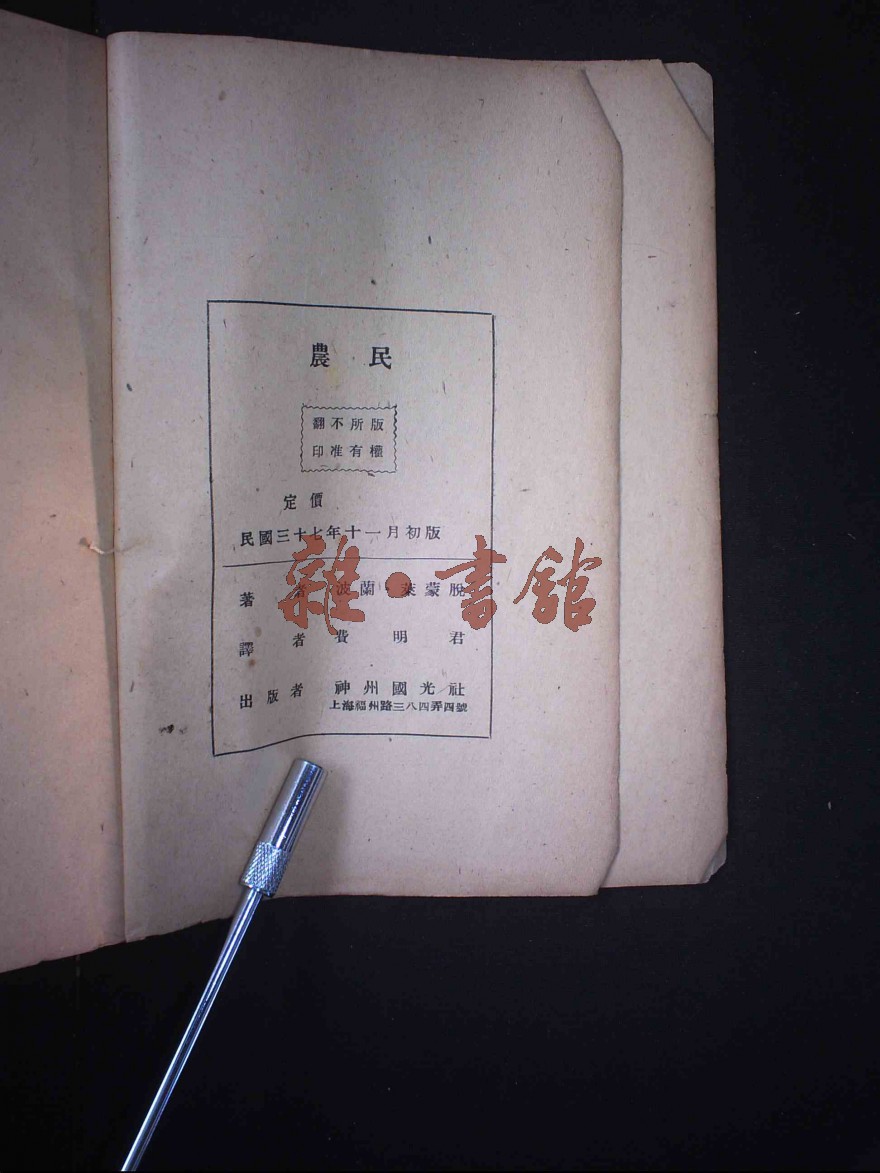 農民
翻不所版
印准有權
定價
民國三十七年十一月初版
著者 波蘭·萊蒙脫
譯者 費明君
出版者 神州國光社
上海福州路三八四弄四號
雜·書館